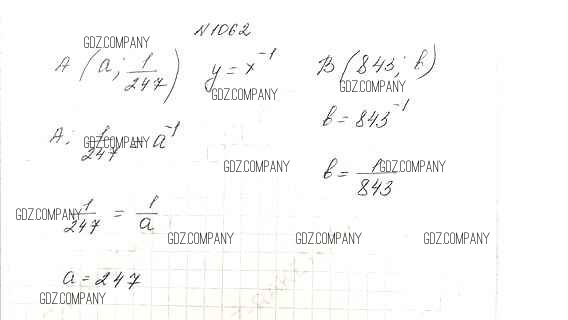 N1062
GDZ.COMPANY
A (a; 1/247) y = x^-1 B (843; b)
GDZ.COMPANY GDZ.COMPANY
b = 843^-1
A: 1/247 = a^-1
GDZ.COMPANY
GDZ.COMPANY GDZ.COMPANY
b = 1/843
1/247 = 1/a
GDZ.COMPANY
GDZ.COMPANY GDZ.COMPANY GDZ.COMPANY
a = 247
GDZ.COMPANY